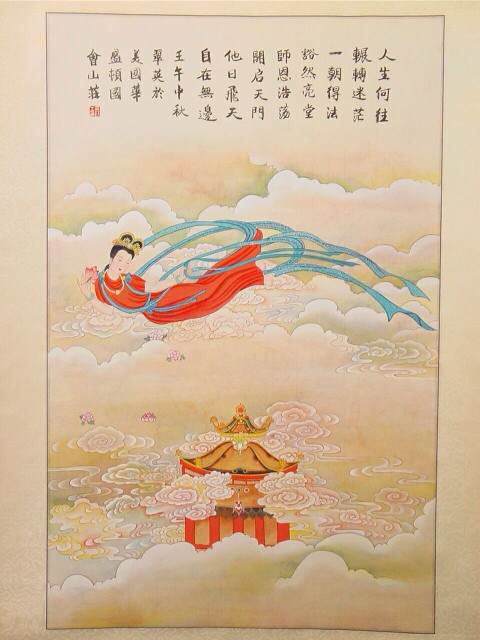 人生何往
輾轉迷茫
一朝得法
豁然亮堂
師恩浩荡
開启天門
他日飛天
自在無邊
壬午中秋
翠英於
美國華
盛頓國
會山莊